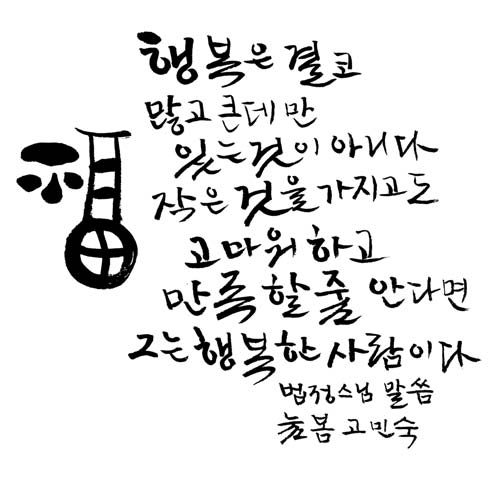 행복은 결코
많고 큰데만
있는것이 아니다
작은 것을 가지고도
고마워 하고
만족할줄 안다면
그는 행복한 사람이다
법정스님 말씀
늘봄 고민숙